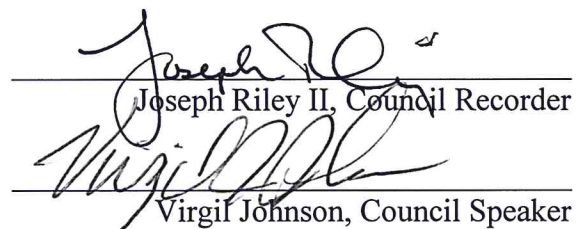 Joseph Riley II
Joseph Riley II, Council Recorder
Virgil Johnson
Virgil Johnson, Council Speaker